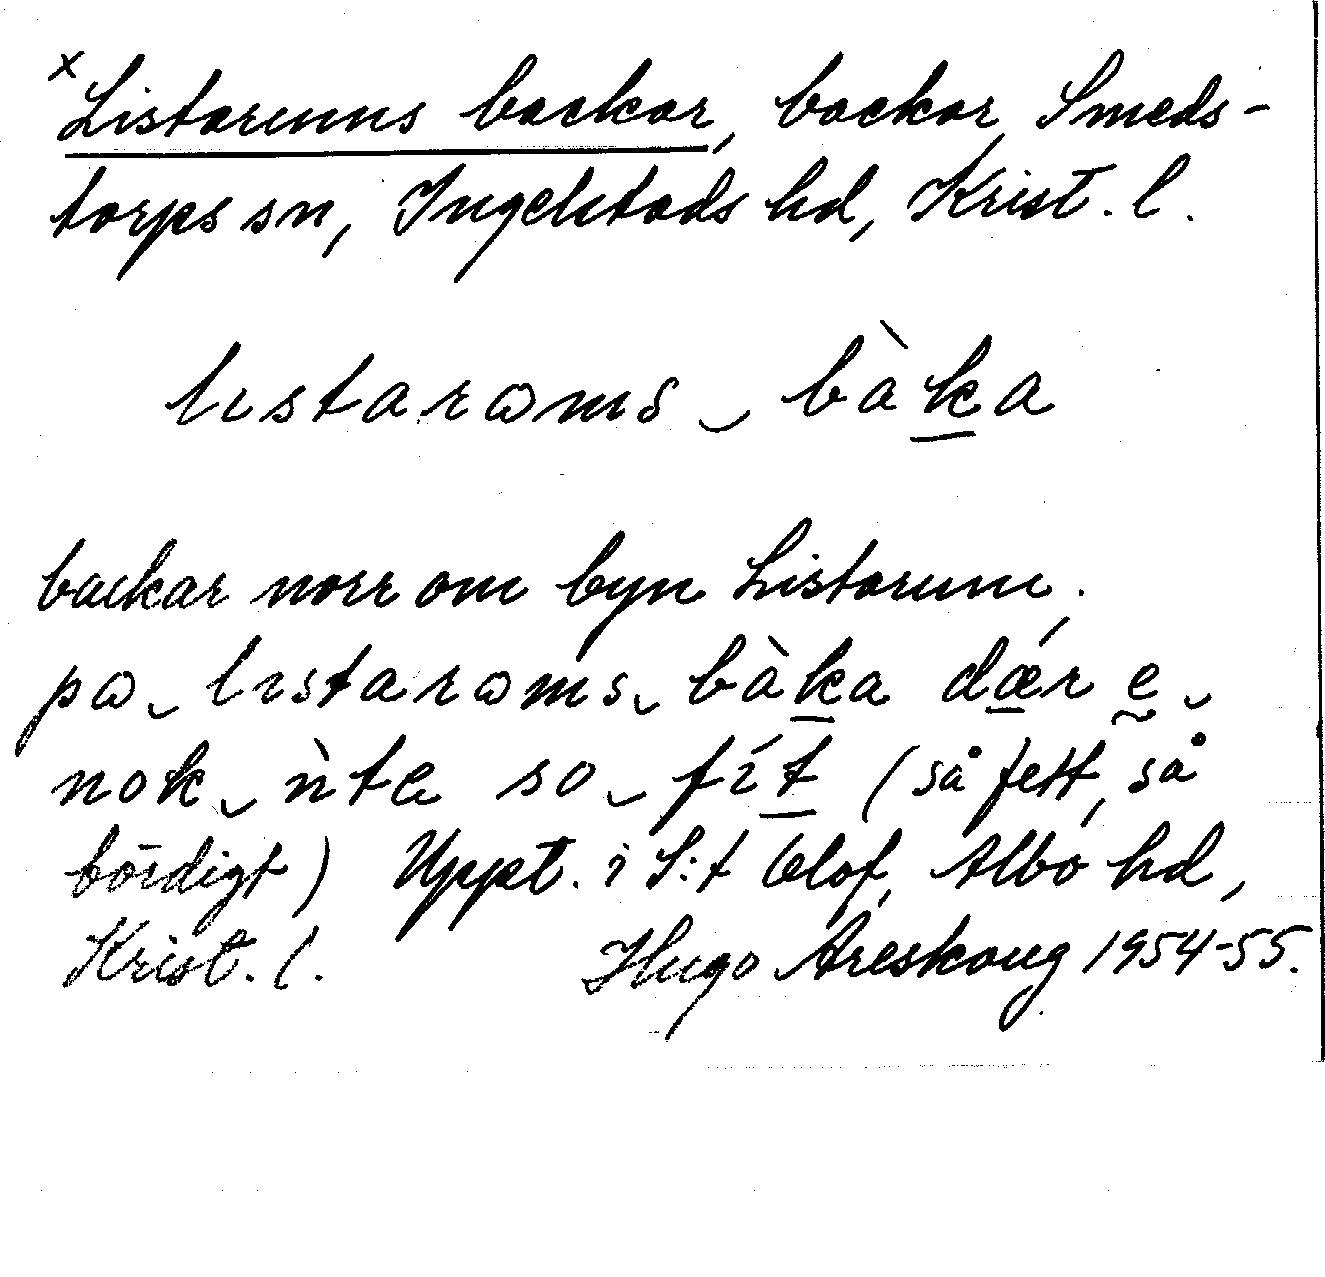 x Listarums backar, backar, Smeds-
torps sn, Ingelstads hd, Krist. l.
lıstarɷms ‿ bàk̲a
backar norr om byn Listarum.
pɷ ‿ lıstarɷms ‿ bàk̲a dæ̲r ḛ ‿
nok ‿ ìnte so ‿ fít̲ (så fett, så
bördigt) Uppt. i S:t Olof, Albo hd,
Krist. l. Hugo Areskoug 1954-55.